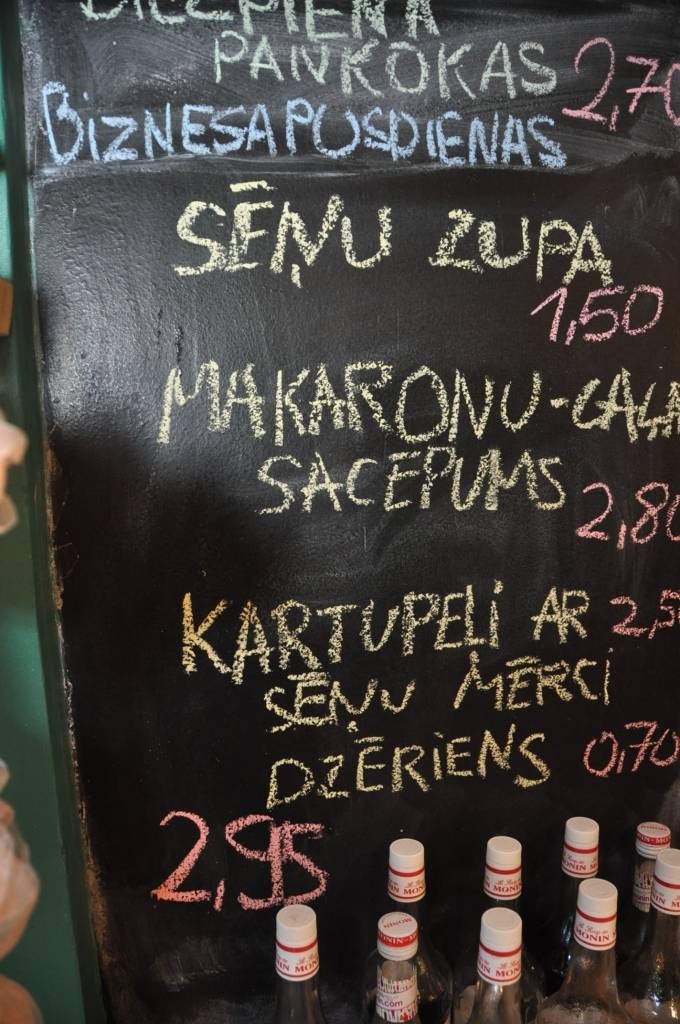 BIEZPIENA
PANKOKAS 2,70
BIZNESA PUSDIENAS
SĒŅU ZUPA
1,50
MAKARONU-GAĻA
SACEPUMS
2,80
KARTUPEĻI AR 2,5
SĒŅU MĒRCI
DZĒRIENS 0,70
2,95
MONIN
MONIN
MONIN
MONIN
MONIN
MONIN
MONIN